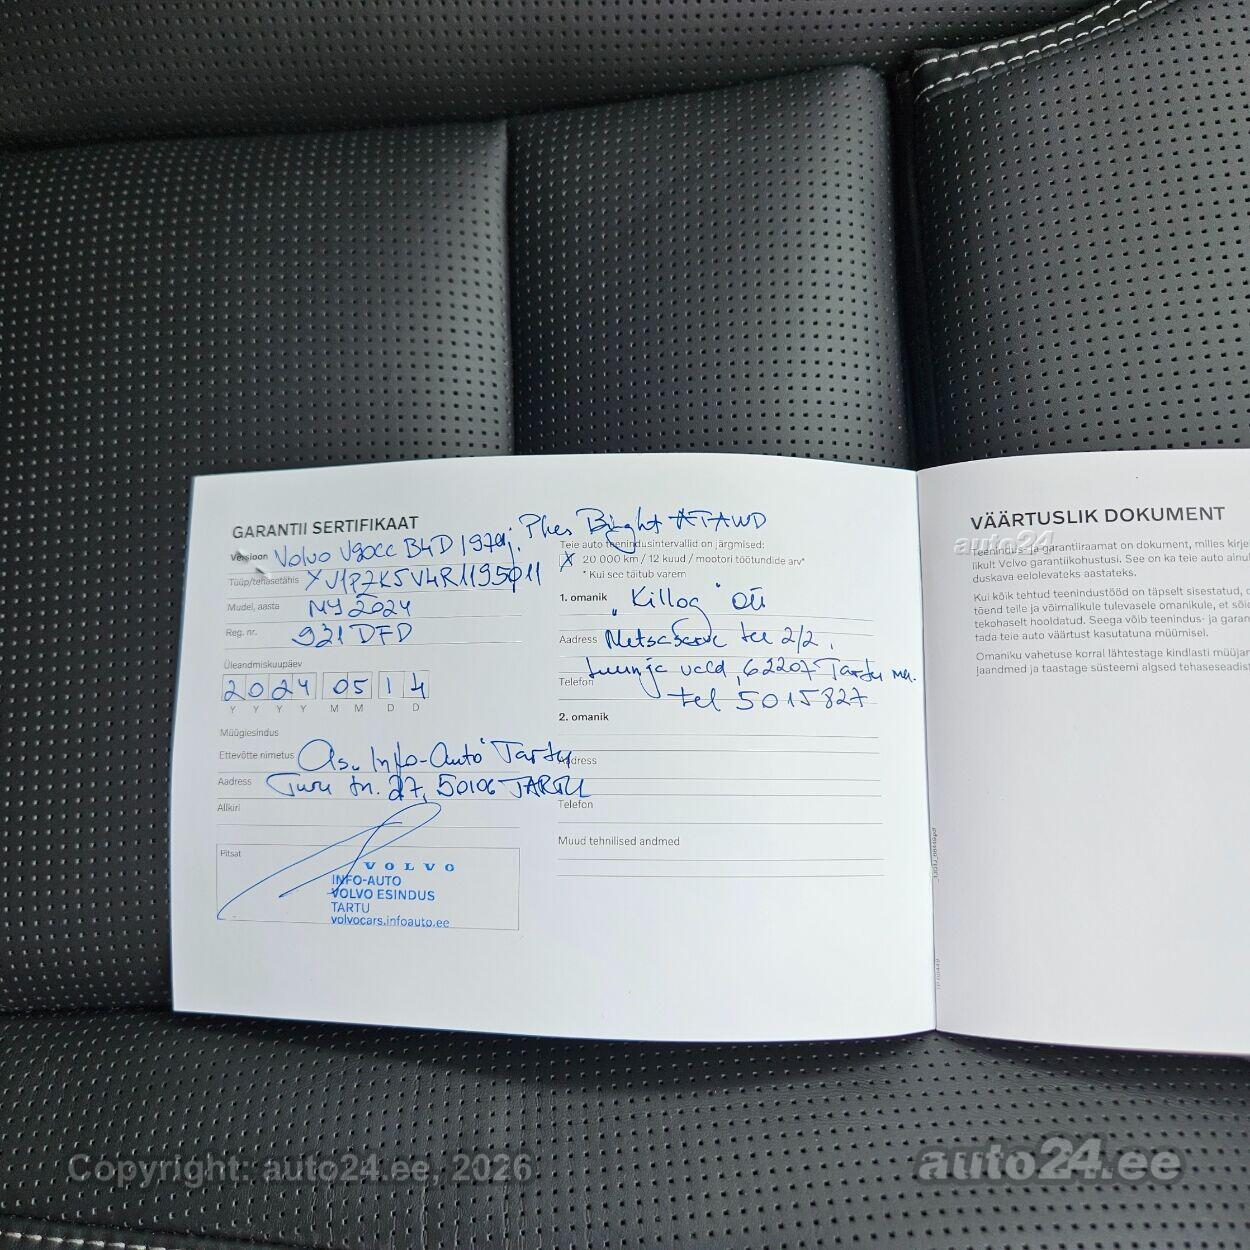 GARANTII SERTIFIKAAT
Versioon Volvo V90CC B4D 197hj. Plus Bright AT AWD
Tüüp/tehasetähis YV1PZK5V4R1195011
Mudel, aasta MY 2024
Reg. nr. 921 DFD
Üleandmiskuupäev
2024 05 14
Y Y Y Y M M D D
Müügiesindus
Ettevõtte nimetus As. Info-Auto Tartu
Aadress Turu tn. 27, 50106 TARTU
Allkiri
Pitsat
VOLVO
INFO-AUTO
VOLVO ESINDUS
TARTU
volvocars.infoauto.ee
Teie auto teenindusintervallid on järgmised:
X 20 000 km / 12 kuud / mootori töötundide arv*
* Kui see täitub varem
1. omanik „Killog" OÜ
Aadress tee 2/2,
Luunja vald, 62207 Tartu mk.
Telefon tel 5015827
2. omanik
Aadress
Telefon
Muud tehnilised andmed
VÄÄRTUSLIK DOKUMENT
Teenindus- ja garantiiraamat on dokument, milles kirje
likult Volvo garantiikohustusi. See on ka teie auto ainul
duskava eelolevateks aastateks.
Kui kõik tehtud teenindustööd on täpselt sisestatud,
tõend teile ja võimalikule tulevasele omanikule, et sõi
tekohaselt hooldatud. Seega võib teenindus- ja garan
tada teie auto väärtust kasutatuna müümisel.
Omaniku vahetuse korral lähtestage kindlasti müüjan
jaandmed ja taastage süsteemi algsed tehaseseadist
auto24
Copyright: auto24.ee, 2026
auto24.ee